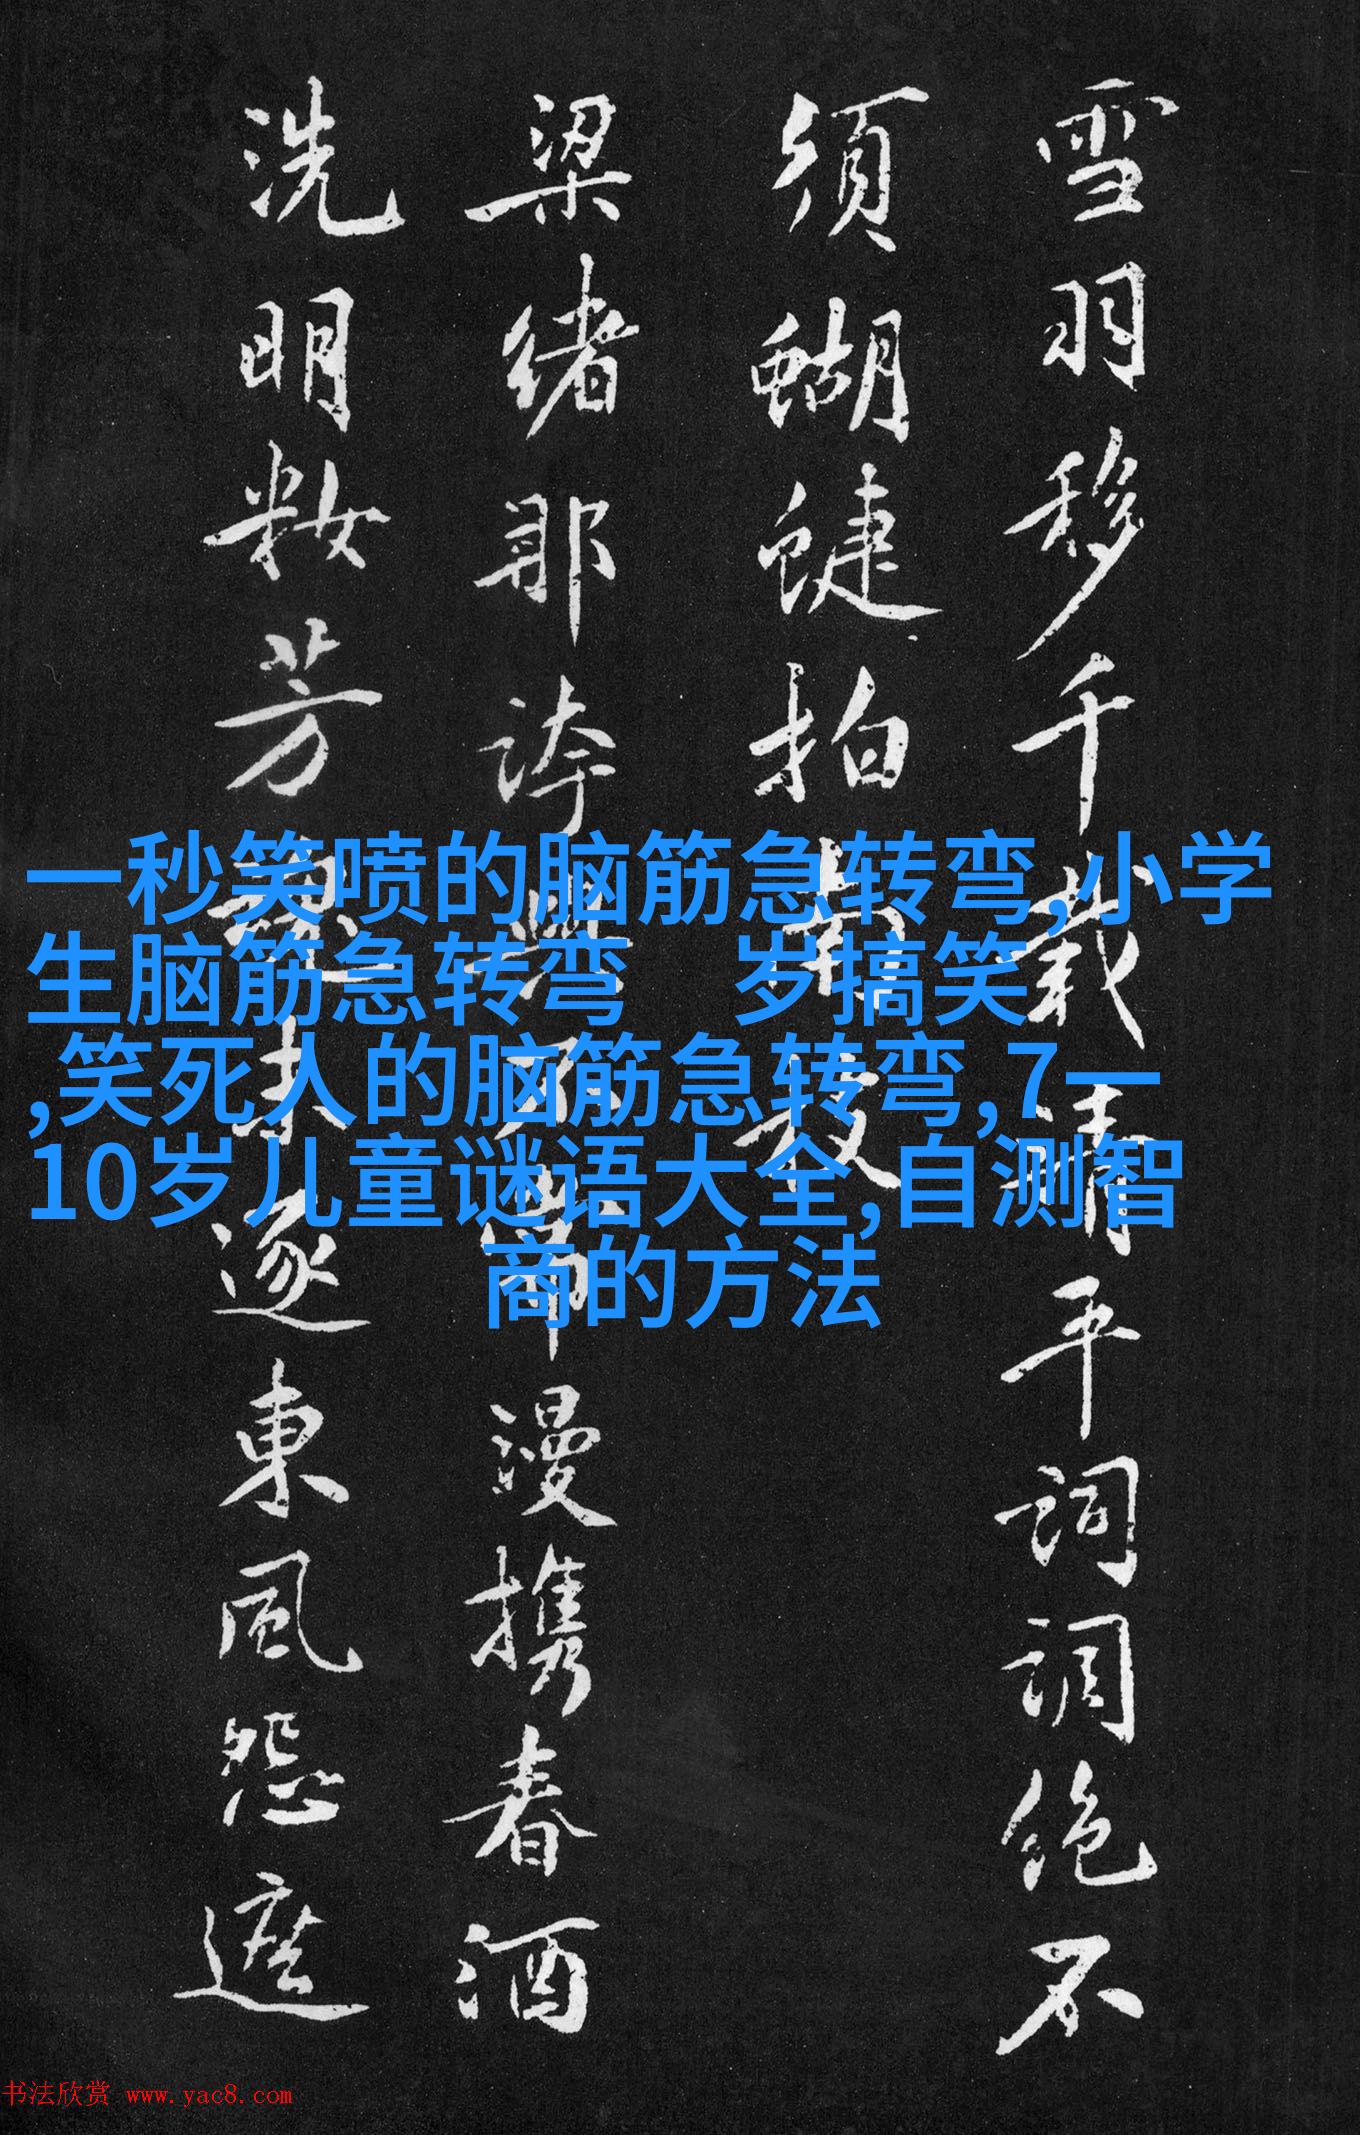 雪羽移千載清平詞調絶不
須蝴蜨拍
梁緒那誇漫携春酒
洗明粧芳逐東風怨遮
一秒笑喷的脑筋急转弯,小学
生脑筋急转弯 岁搞笑
,笑死人的脑筋急转弯,7一
10岁儿童谜语大全,自测智
商的方法
书法欣赏 www.yac8.com